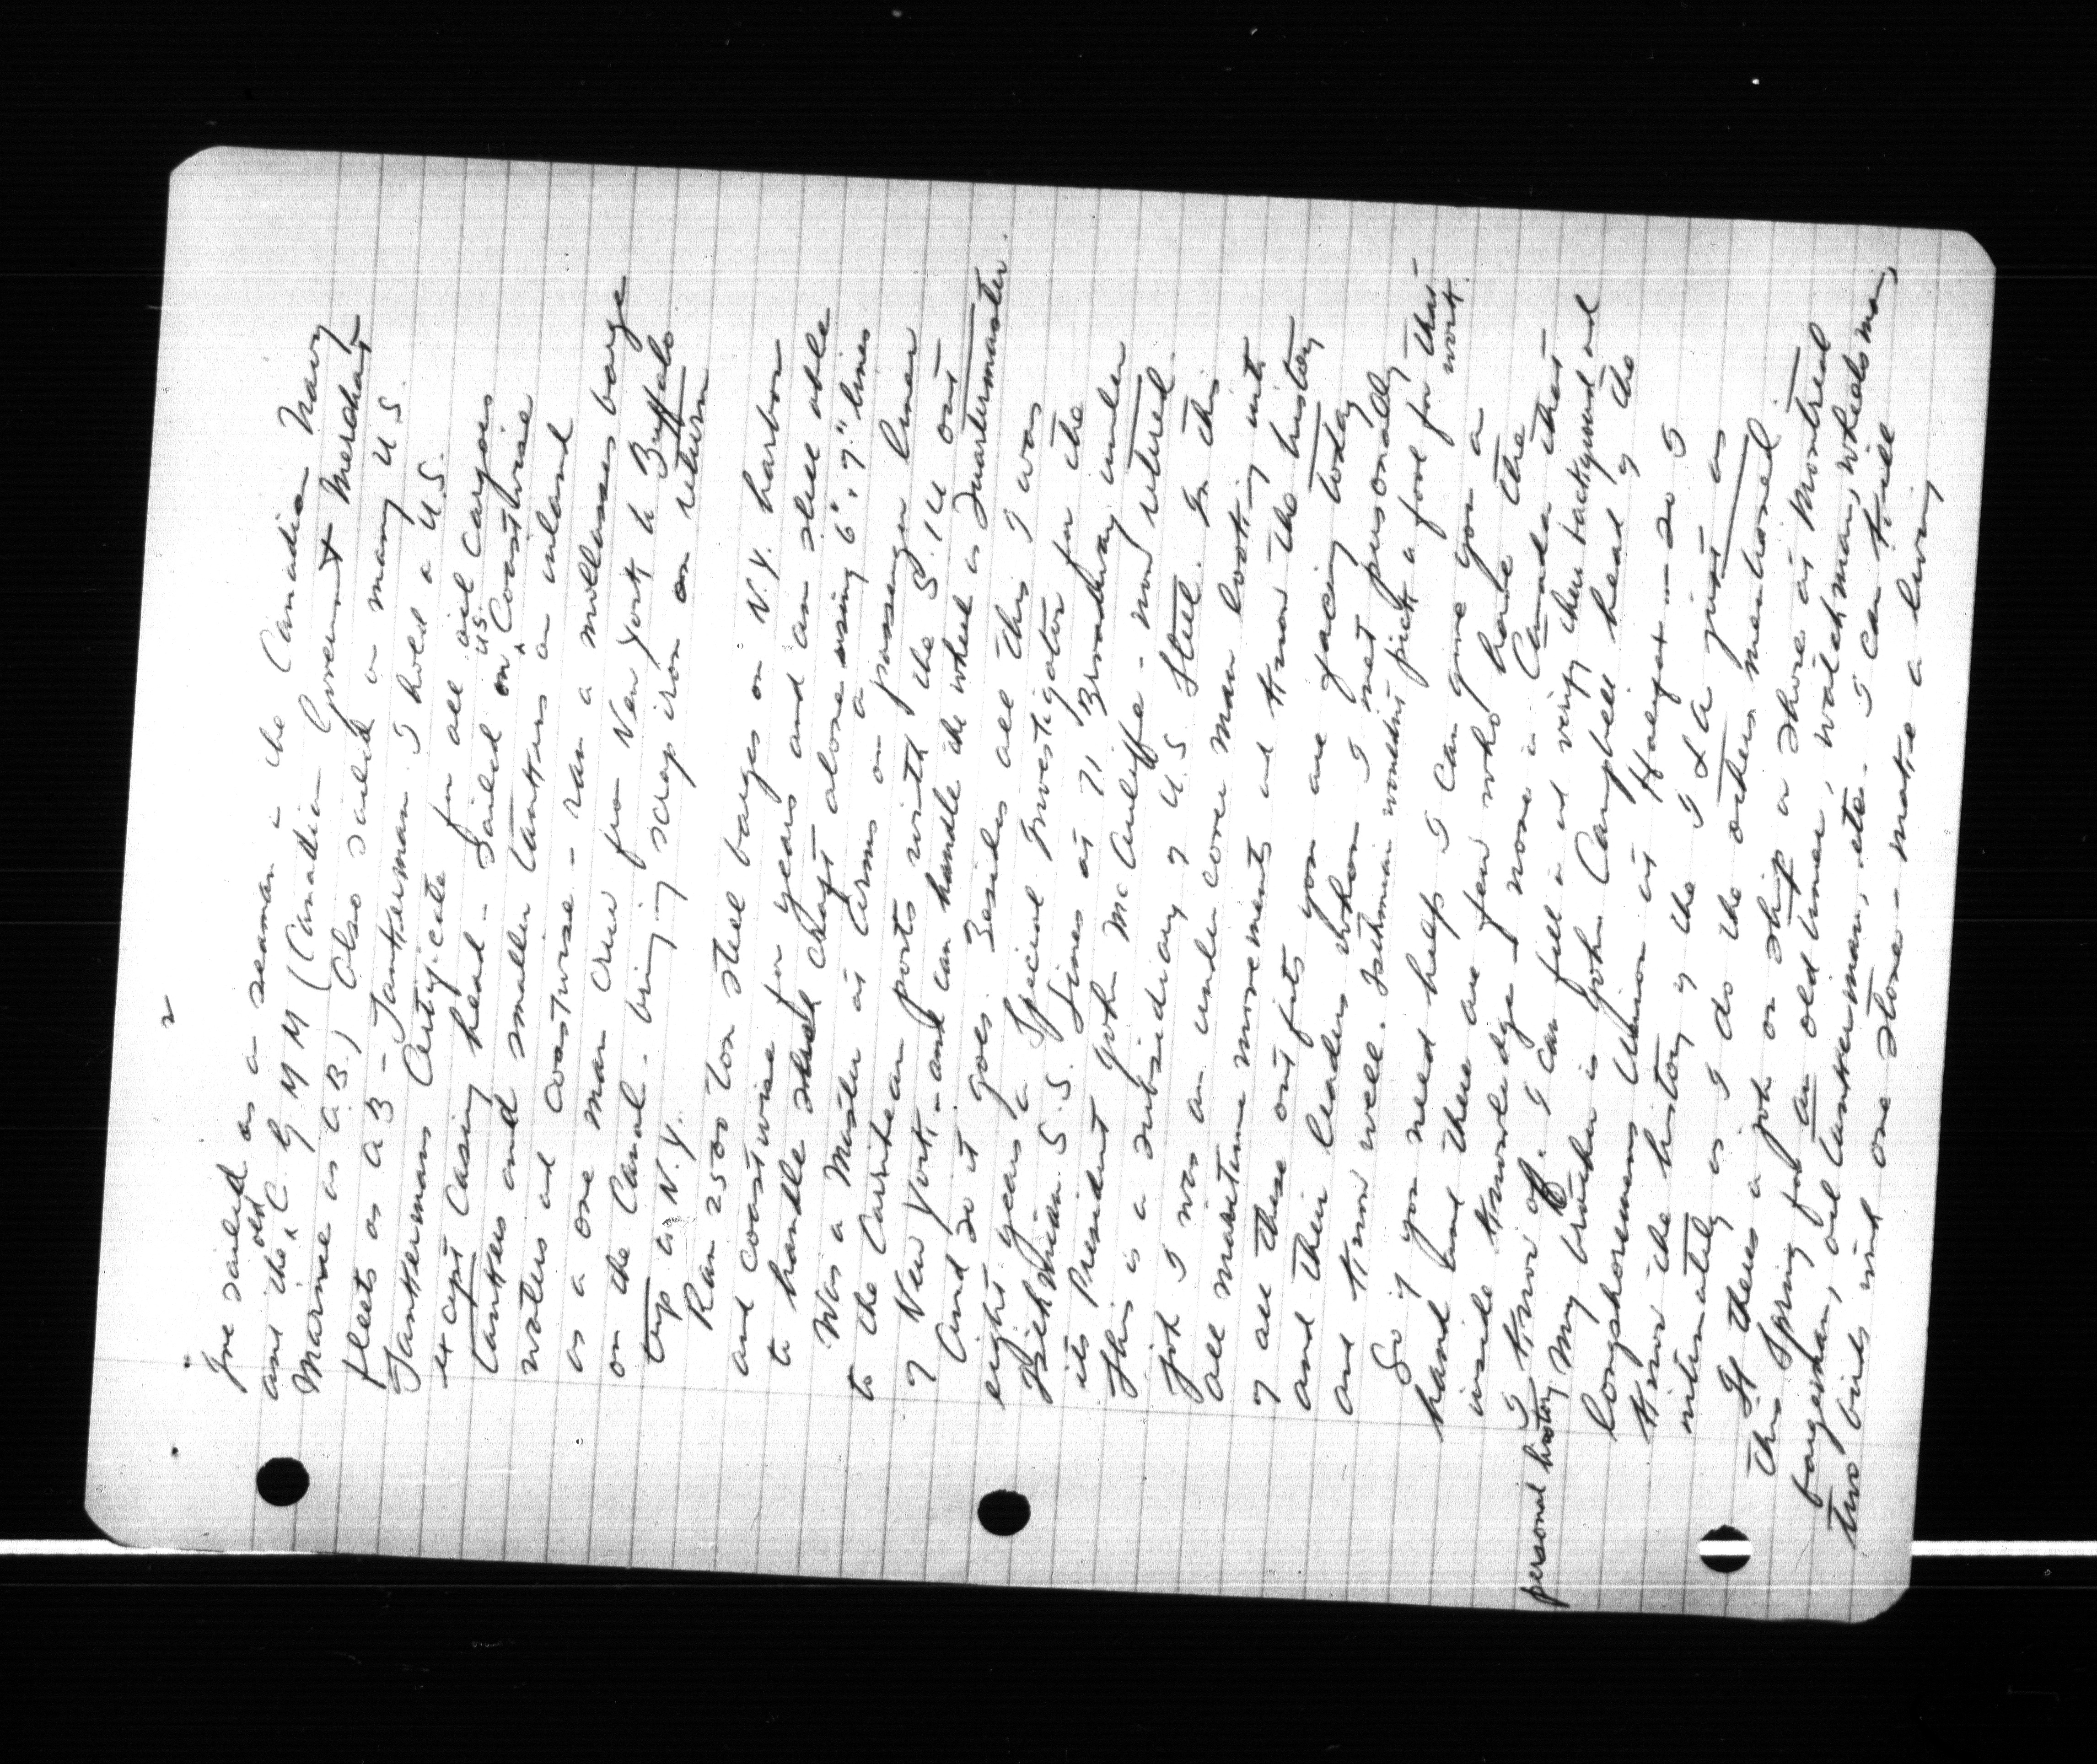 2
I've sailed as a seaman in the Canadian Navy
and the old C. G M M (Canadian Government Merchant
Marine as A.B.) Also sailed in many U.S.
fleets as AB - Tankerman. I hold a U.S.
Tankermans Certificate for all oil cargoes
except casing head - sailed on U.S. Coastwise
tankers and smaller tankers on inland
waters and coastwise - ran a mollasses barge
as a one man crew from New York to Buffalo
on the Canal - bring scrap iron on return
trip to N.Y.
Ran 2500 ton steel barges on N.Y. harbor
and coastwise for years and am still able
to handle such craft alone using 6" & 7" lines
Was a Master at Arms on a passenger liner
to the Carribean ports with the S.I.U out
of New York, - and can handle the wheel as Quartermaster.
And so it goes. Besides all this I was
eight years a Special Investigator for the
Isthmian S.S. Lines at 71 Broadway under
its President John McAuliffe - now retired.
This is a subsidiary of U.S Steel. In this
job I was an under cover man looking into
all maritime movements and know the history
of all these outfits you are facing today
and their leaders whom I met personally
and know well. Isthmian wouldnt pick a fool for that work.
So if you need help I can give you a
hand and there are few who have the
inside knowledge, none in Canada that
I know of. I can fill in and verify their background and
personal history My brother is John Campbell head of the
longshoremens Union at Halifax - so I
know the history of the I L A just as
intimately as I do the others mentioned.
If theres a job on ship or shore at Montreal
this Spring for an old timer, watchman, wheelsman,
bargeman, oil tankerman, etc. I can kill
two birds with one stone - make a living